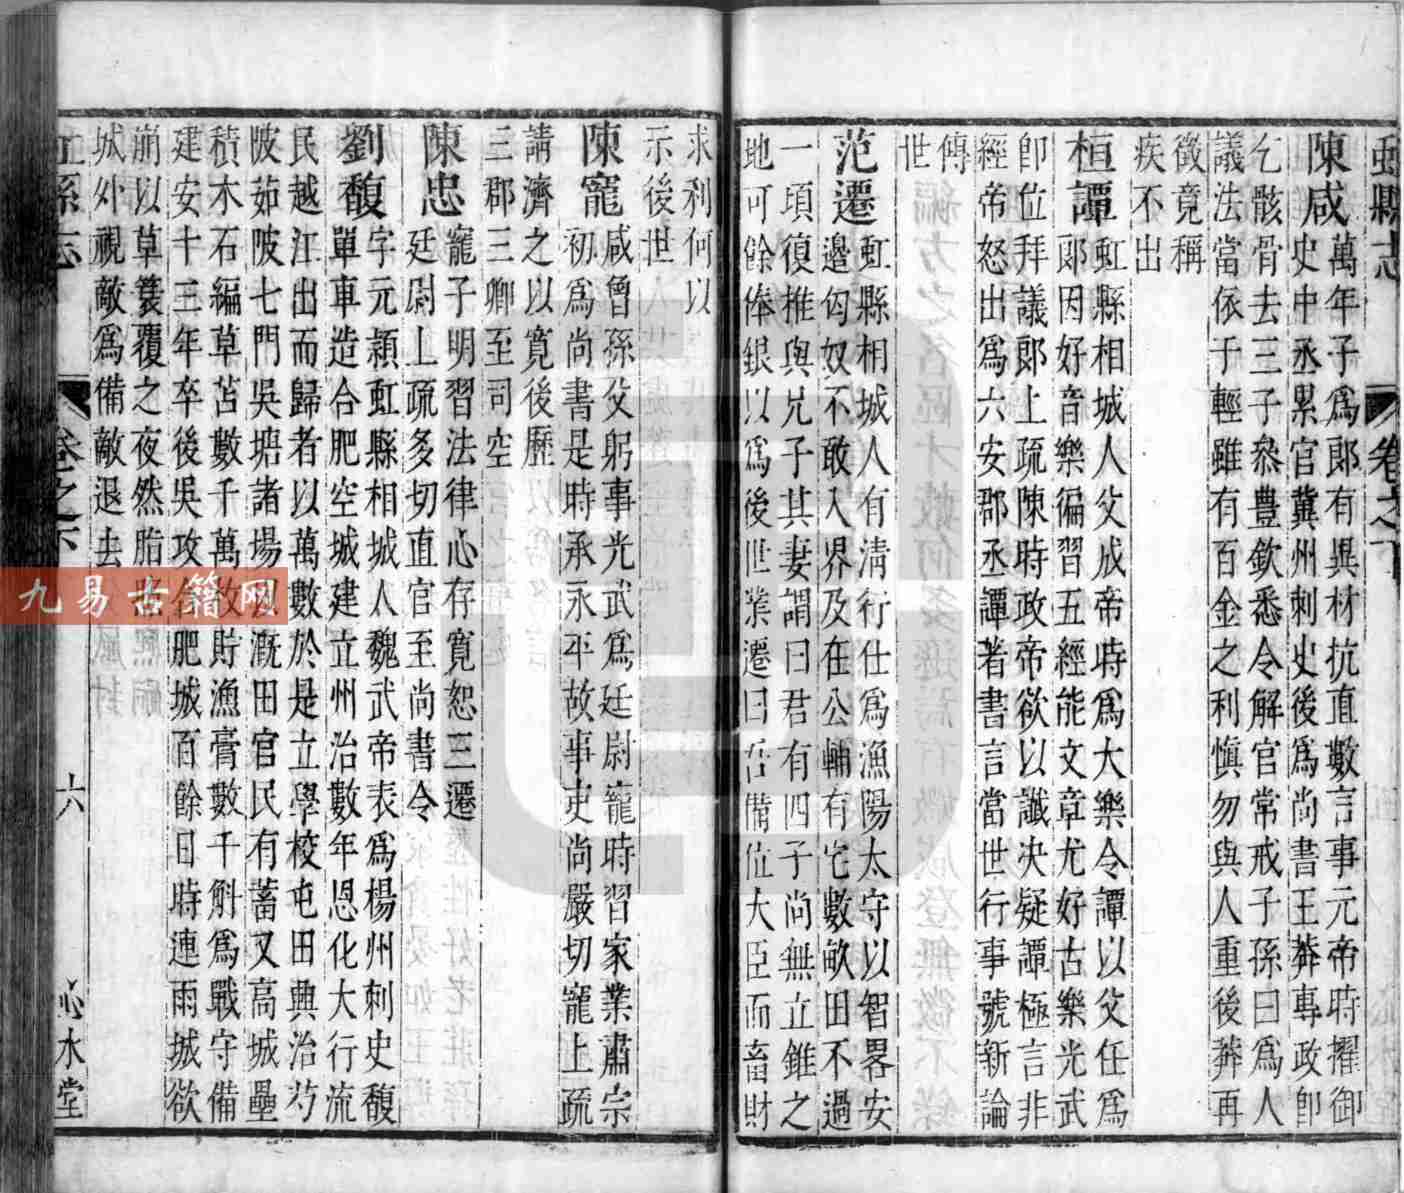 虹縣志
卷之下
陳咸萬年子爲郎有異材抗直數言事元帝時擢御
史中丞累官冀州刺史後爲尚書王莽專政卽
乞骸骨去三子叅豊欽悉令解官常戒子孫曰爲人
議法當依于輕雖有百金之利慎勿與人重後莽再
徵竟稱
疾不出
桓譚虹縣相城人父成帝時爲大樂令譚以父任爲
郎因好音樂徧習五經能文章尤好古樂光武
卽位拜議郎上疏陳時政帝欲以讖决疑譚極言非
經帝怒出爲六安郡丞譚著書言當世行事號新論
傳
世
范遷虹縣相城人有淸行仕爲漁陽太守以智畧安
邊匈奴不敢入界及在公輔有宅數畝田不過
一頃復推與兄子其妻謂曰君有四子尚無立錐之
地可餘俸銀以爲後世業遷曰吾備位大臣而畜財
求利何以
示後世
陳寵咸曾孫父躬事光武爲廷尉寵時習家業肅宗
初爲尚書是時承永平故事吏尚嚴切寵上疏
請濟之以寛後歷
三郡三卿至司空
陳忠寵子明習法律心存寛恕三遷
廷尉上疏多切直官至尚書令
劉馥字元頴虹縣相城人魏武帝表爲楊州刺史馥
單車造合肥空城建立州治數年恩化大行流
民越江出而歸者以萬數於是立學校屯田興治芍
陂茹陂七門吳塘諸場以漑田官民有蓄又高城壘
積木石編草苫數千萬枚貯漁膏數千斛爲戰守備
建安十三年卒後吳攻合肥城百餘日時連雨城欲
崩以草簑覆之夜然脂照
城外視敵爲備敵退去
虹縣志
卷之下
六
沁水堂
九易古籍网